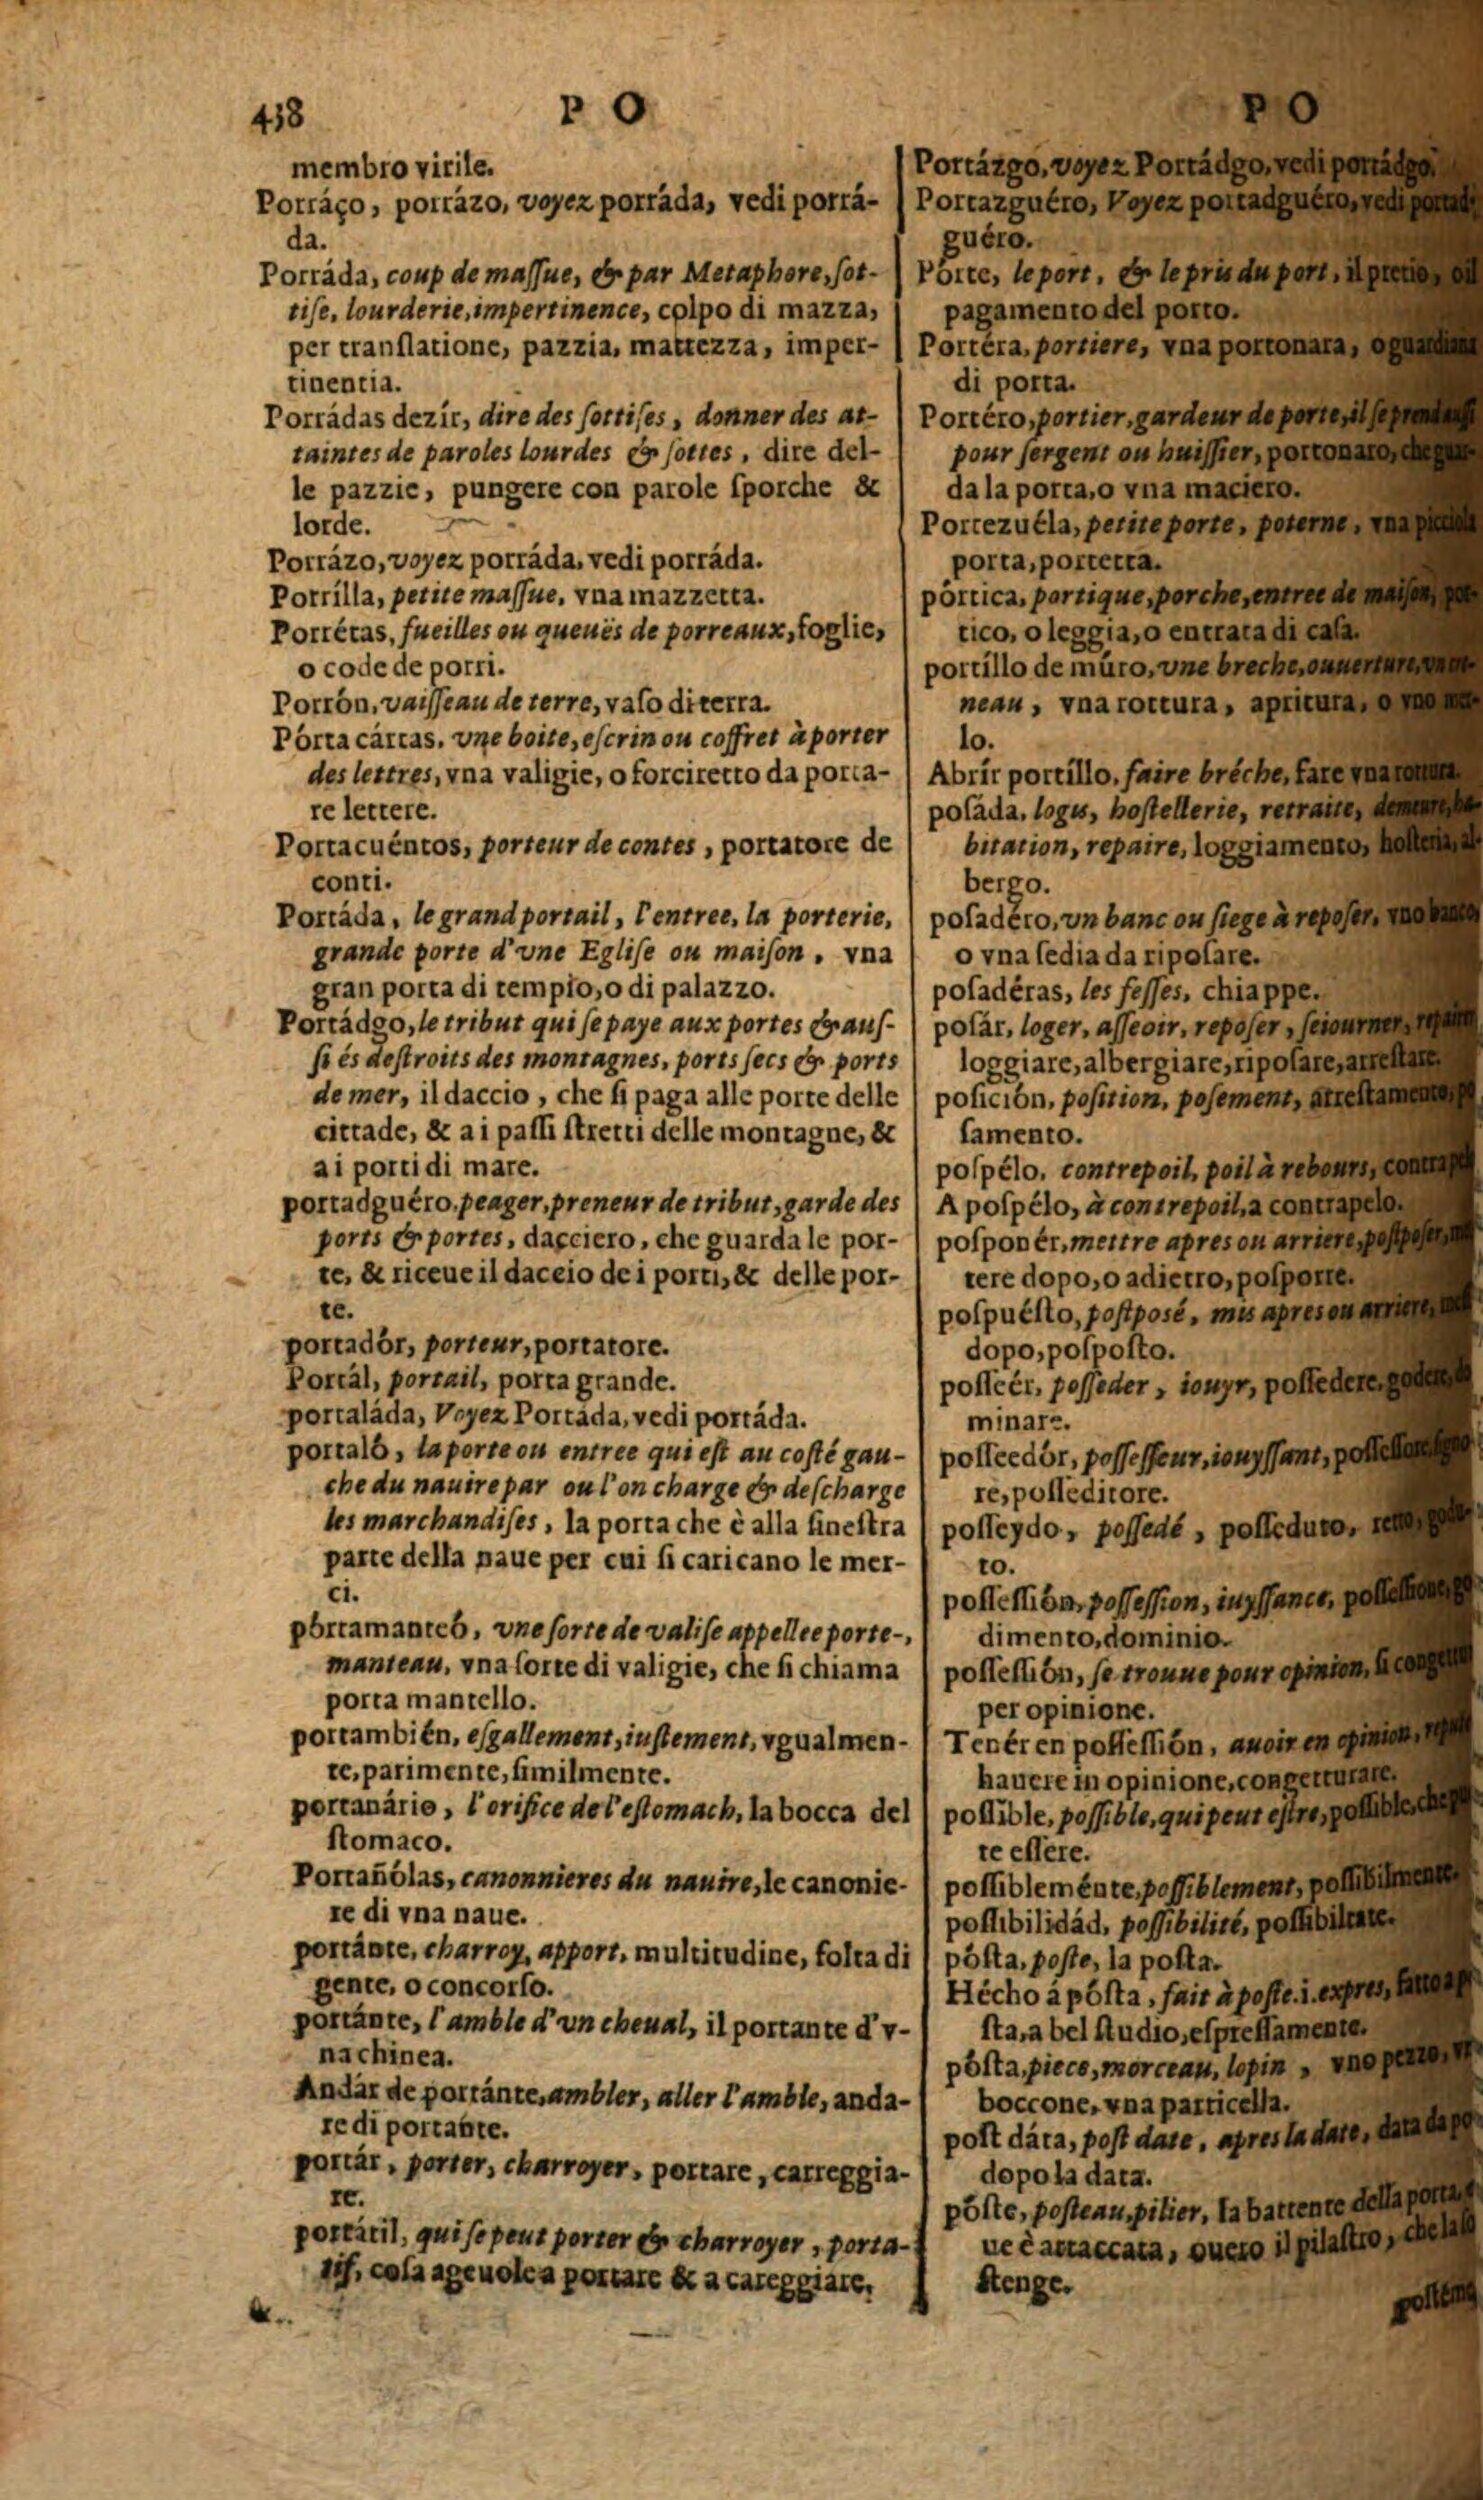 438 P O
membro virile.
Porráço, porrázo, voyez porráda, vedi porrá-
da.
Porráda, coup de maſſue, & par Metaphore, ſot-
tiſe, lourderie, impertinence, colpo di mazza,
per tranſlatione, pazzia, mattezza, imper-
tinentia.
Porrádas dezír, dire des ſottiſes, donner des at-
taintes de paroles lourdes & ſottes, dire del-
le pazzie, pungere con parole ſporche &
lorde.
Porrázo, voyez porráda, vedi porráda.
Porrílla, petite maſſue, vna mazzetta.
Porrétas, fueilles ou queuës de porreaux, foglie,
o code de porri.
Porrón, vaiſſeau de terre, vaſo di terra.
Pórta cártas, vne boite, eſcrin ou coffret à porter
des lettres, vna valigie, o forciretto da porta-
re lettere.
Portacuéntos, porteur de contes, portatore de
conti.
Portáda, le grand portail, l'entree, la porterie,
grande porte d'vne Egliſe ou maiſon, vna
gran porta di tempio, o di palazzo.
Portádgo, le tribut qui ſe paye aux portes & auſ-
ſi és deſtroits des montagnes, ports ſecs & ports
de mer, il daccio, che ſi paga alle porte delle
cittade, & a i paſſi ſtretti delle montagne, &
a i porti di mare.
portadguéro, peager, preneur de tribut, garde des
ports & portes, dacciero, che guarda le por-
te, & riceue il daccio de i porti, & delle por-
te.
portadór, porteur, portatore.
Portál, portail, porta grande.
portaláda, Voyez Portáda, vedi portáda.
portaló, la porte ou entree qui eſt au coſté gau-
che du nauire par ou l'on charge & deſcharge
les marchandiſes, la porta che è alla ſineſtra
parte della naue per cui ſi caricano le mer-
ci.
pórtamanteó, vne ſorte de valiſe appellee porte-,
manteau, vna ſorte di valigie, che ſi chiama
porta mantello.
portambién, eſgallement, iuſtement, vgualmen-
te, parimente, ſimilmente.
portanário, l'orifice de l'eſtomach, la bocca del
ſtomaco.
Portañólas, canonnieres du nauire, le canonie-
re di vna naue.
portánte, charroy, apport, multitudine, folta di
gente, o concorſo.
portánte, l'amble d'vn cheual, il portante d'v-
na chinea.
Andár de portánte, ambler, aller l'amble, anda-
re di portante.
portár, porter, charroyer, portare, carreggia-
re.
portátil, qui ſe peut porter & charroyer, porta-
tif, coſa ageuole a portare & a careggiare,
P O
Portázgo, voyez Portádgo, vedi portádgo.
Portazguéro, Voyez portadguéro, vedi portad-
guéro.
Pórte, le port, & le pris du port, il pretio, o il
pagamento del porto.
Portéra, portiere, vna portonara, o guardiana
di porta.
Portéro, portier, gardeur de porte, il ſe prend auſſi
pour ſergent ou huiſſier, portonaro, che guar-
da la porta, o vna maciero.
Portezuéla, petite porte, poterne, vna picciola
porta, portetta.
pórtica, portique, porche, entree de maiſon, por-
tico, o leggia, o entrata di caſa.
portíllo de múro, vne breche, ouuerture,
neau, vna rottura, apritura, o vno mer-
lo.
Abrír portíllo, faire bréche, fare vna rottura.
poſáda, logis, hoſtellerie, retraite, demeure, ha-
bitation, repaire, loggiamento, hoſteria, al-
bergo.
poſadéro, vn banc ou ſiege à repoſer, vno banco,
o vna ſedia da ripoſare.
poſadéras, les feſſes, chiappe.
poſár, loger, aſſeoir, repoſer, ſeiourner,
loggiare, albergiare, ripoſare, arreſtare.
poſición, poſition, poſement, arreſtamento, po
ſamento.
poſpélo, contrepoil, poil à rebours, contrapelo
A poſpélo, à contrepoil, a contrapelo.
poſponér, mettre apres ou arriere, poſtpoſer,
tere dopo, o adietro, poſporre.
poſpuéſto, poſtposé, mis apres ou arriere,
dopo, poſpoſto.
poſſeér, poſſeder, iouyr, poſſedere, godere, do
minare.
poſſeedór, poſſeſſeur, iouyſſant, poſſeſſore, ſigno
re, poſſeditore.
poſſeydo, poſſedé, poſſeduto, retto, godu-
to.
poſſeſſión, poſſeſſion, iuyſſance, poſſeſſione, go
dimento, dominio.
poſſeſſión, ſe trouue pour opinion, ſi
per opinione.
Tenér en poſſeſſión, auoir en opinion,
hauere in opinione, congetturare.
poſſible, poſſible, qui peut eſtre, poſſible, che
te eſſere.
poſſibleménte, poſſiblement, poſſibilmente.
poſſibilidád, poſſibilité, poſſibiltate.
póſta, poſte, la poſta.
Hécho á póſta, fait à poſte. i. expres, fatto a po
ſta, a bel ſtudio, eſpreſſamente.
póſta, piece, morceau, lopin, vno pezzo, vn
boccone, vna particella.
poſt dáta, poſt date, apres la date, data da po
dopo la data.
póſte, poſteau, pilier, la battente della porta,
ue è attaccata, ouero il pilaſtro, che la ſo
ſtenge.